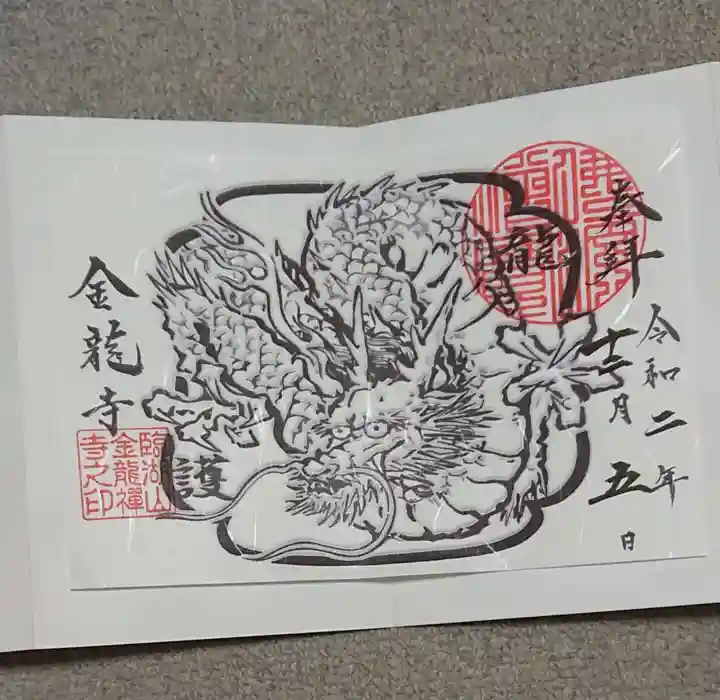 奉拝
令和二年
十二月五日
龍
護
金龍寺
臨湖山
金龍禅
寺之印